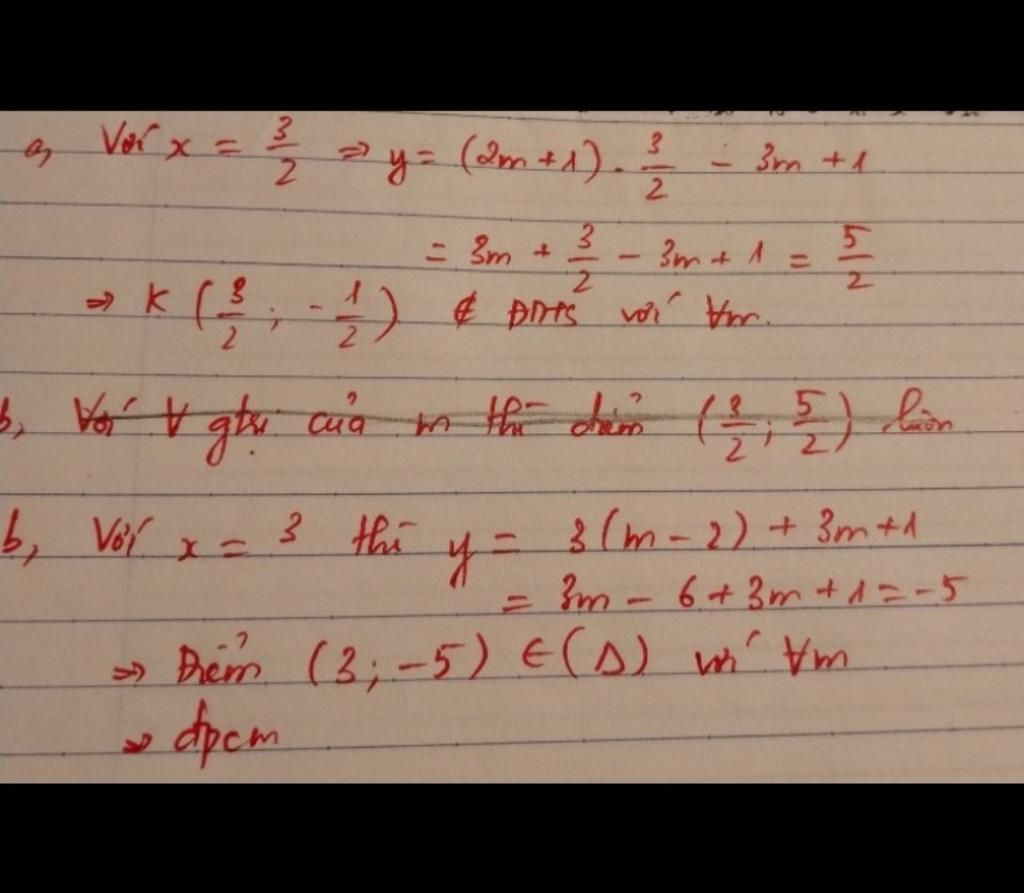 a, Với x = 3/2 ⇒ y = (2m + 1) . 3/2 - 3m + 1
= 3m + 3/2 - 3m + 1 = 5/2
⇒ K (3/2 ; -1/2) ∉ ĐTHS với ∀m.
b, Với ∀ gtrị của m thì điểm (3/2 ; 5/2) luôn
b, Với x = 3 thì y = 3(m - 2) + 3m + 1
= 3m - 6 + 3m + 1 = -5
⇒ Điểm (3 ; -5) ∈ (Δ) với ∀m
⇒ đpcm